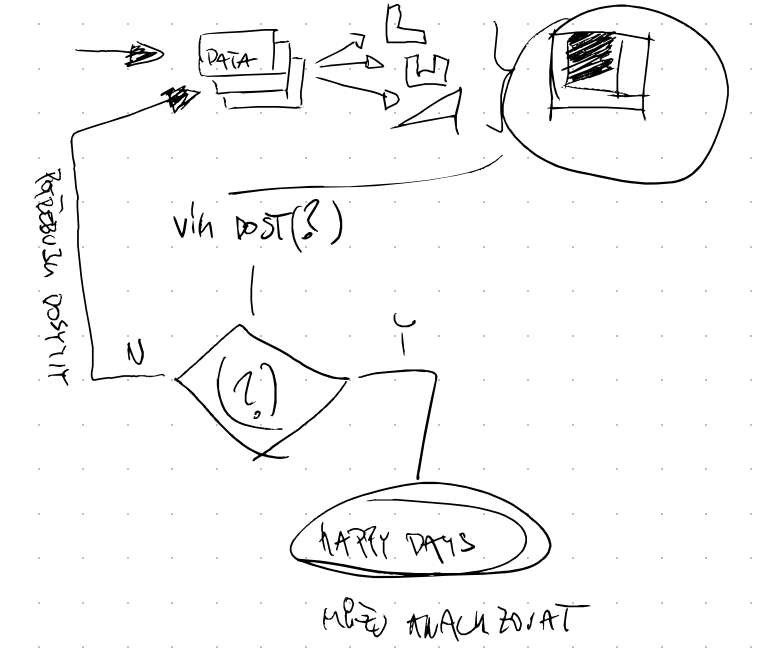 DATA
VÍM DOST(?)
POTŘEBUJU DOSYTIT
N
Y
(?)
HAPPY DAYS
MŮŽU ANALYZOVAT